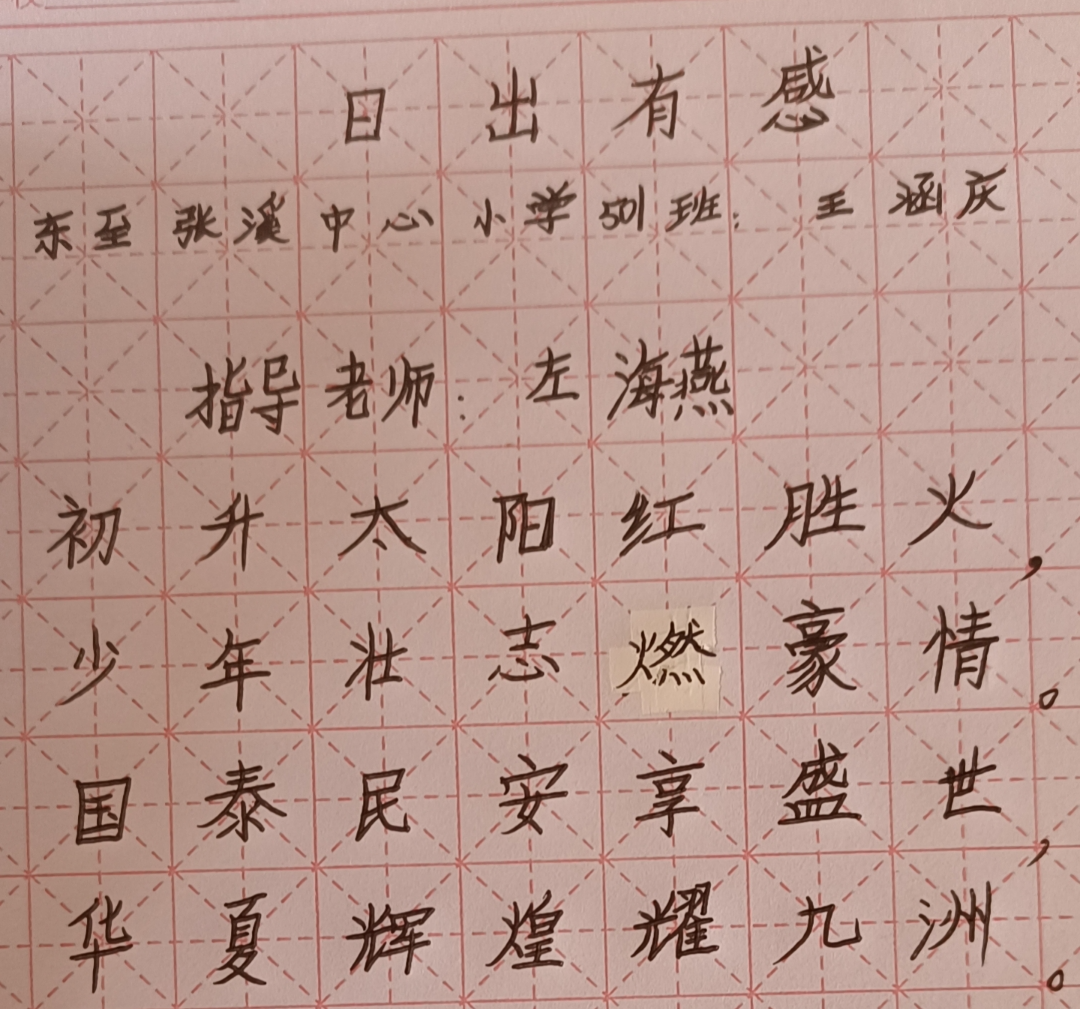 日出有感
东至张溪中心小学501班：王涵庆
指导老师：左海燕
初升太阳红胜火，
少年壮志燃豪情。
国泰民安享盛世，
华夏辉煌耀九洲。